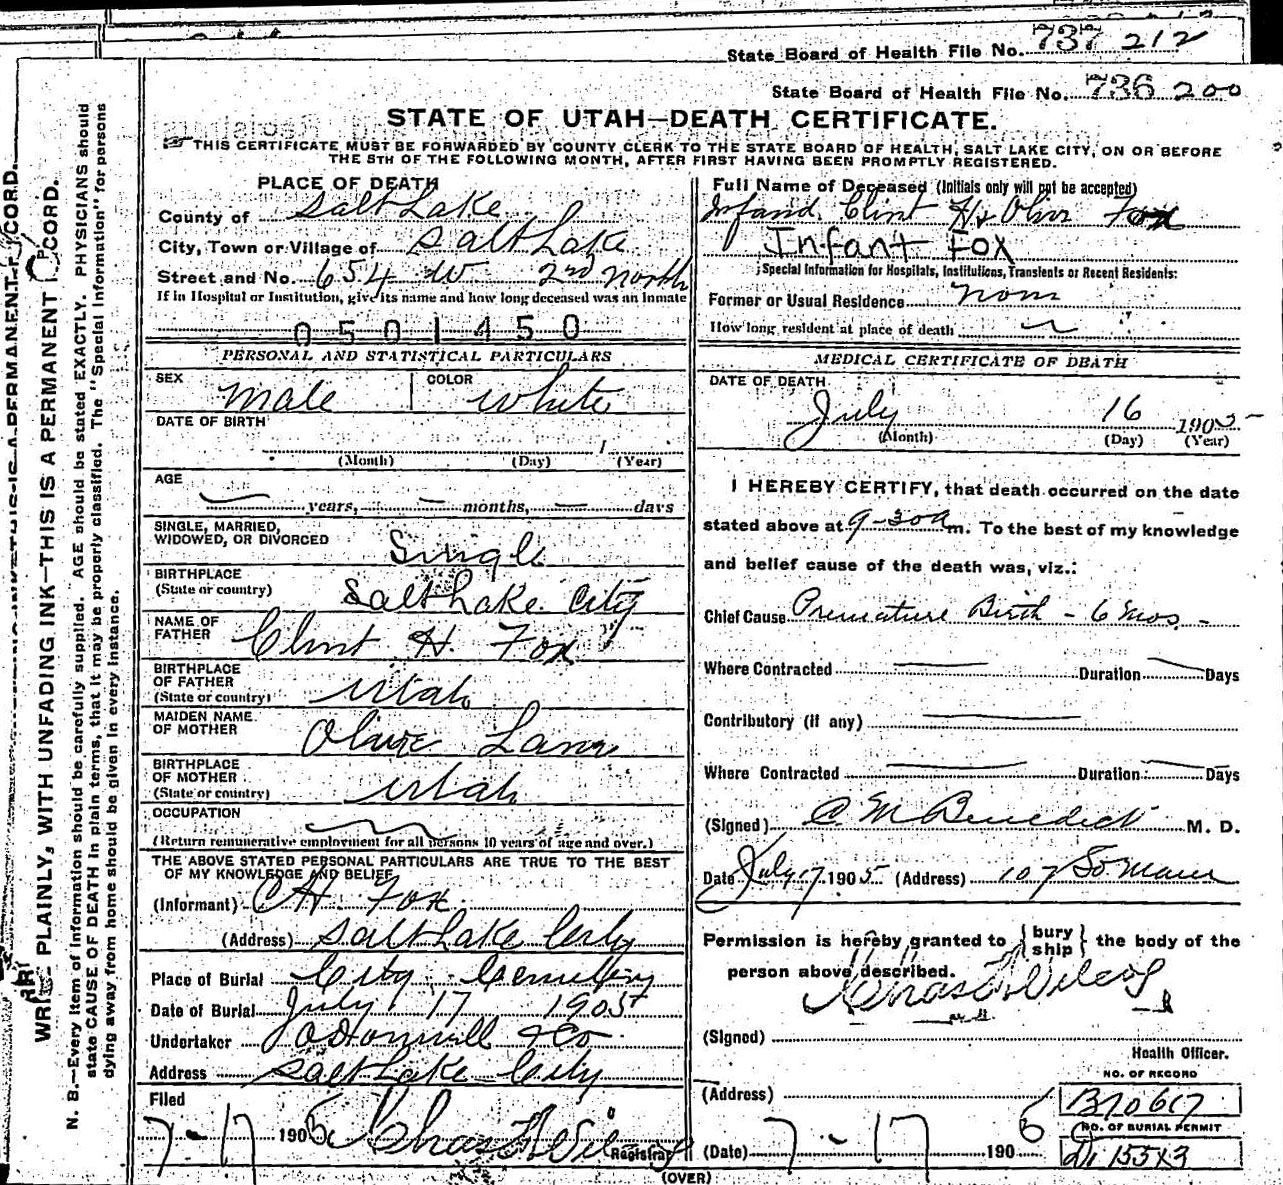 State Board of Health File No. 737 212
State Board of Health File No. 736 200
STATE OF UTAH—DEATH CERTIFICATE.
THIS CERTIFICATE MUST BE FORWARDED BY COUNTY CLERK TO THE STATE BOARD OF HEALTH, SALT LAKE CITY, ON OR BEFORE
THE 5TH OF THE FOLLOWING MONTH, AFTER FIRST HAVING BEEN PROMPTLY REGISTERED.
PLACE OF DEATH
County of Salt Lake
City, Town or Village of Salt Lake
Street and No. 654 W 2nd North
If in Hospital or Institution, give its name and how long deceased was an inmate
0501450
PERSONAL AND STATISTICAL PARTICULARS
SEX Male COLOR White
DATE OF BIRTH
(Month) (Day) 1 (Year)
AGE
years, months, days
SINGLE, MARRIED,
WIDOWED, OR DIVORCED Single
BIRTHPLACE
(State or country) Salt Lake City
NAME OF
FATHER Clint H. Fox
BIRTHPLACE
OF FATHER
(State or country) Utah
MAIDEN NAME
OF MOTHER Olive
BIRTHPLACE
OF MOTHER
(State or country) Utah
OCCUPATION
(Return remunerative employment for all persons 10 years of age and over.)
THE ABOVE STATED PERSONAL PARTICULARS ARE TRUE TO THE BEST
OF MY KNOWLEDGE AND BELIEF
(Informant) C H. Fox
(Address) Salt Lake City
Place of Burial City Cemetery
Date of Burial July 17 1905
Undertaker & Co
Address Salt Lake City
Filed
7-17 190 Registrar
(OVER)
Full Name of Deceased (Initials only will not be accepted)
Infant Clint H & Olive Fox
Infant Fox
Special Information for Hospitals, Institutions, Transients or Recent Residents:
Former or Usual Residence
How long resident at place of death
MEDICAL CERTIFICATE OF DEATH
DATE OF DEATH
July 16 1905
(Month) (Day) (Year)
I HEREBY CERTIFY, that death occurred on the date
stated above at 9-30 a m. To the best of my knowledge
and belief cause of the death was, viz.:
Chief Cause Premature Birth - 6 mos -
Where Contracted Duration Days
Contributory (if any)
Where Contracted Duration Days
(Signed) C M Benedict M. D.
Date July 17 1905 (Address) 107 So Main
Permission is hereby granted to { bury ship } the body of the
person above described.
(Signed)
Health Officer.
(Address)
NO. OF RECORD
NO. OF BURIAL PERMIT
(Date) 7-17 190
WRITE PLAINLY, WITH UNFADING INK—THIS IS A PERMANENT RECORD.
N. B.—Every item of information should be carefully supplied. AGE should be stated EXACTLY. PHYSICIANS should
state CAUSE OF DEATH in plain terms, that it may be properly classified. The "Special Information" for persons
dying away from home should be given in every instance.